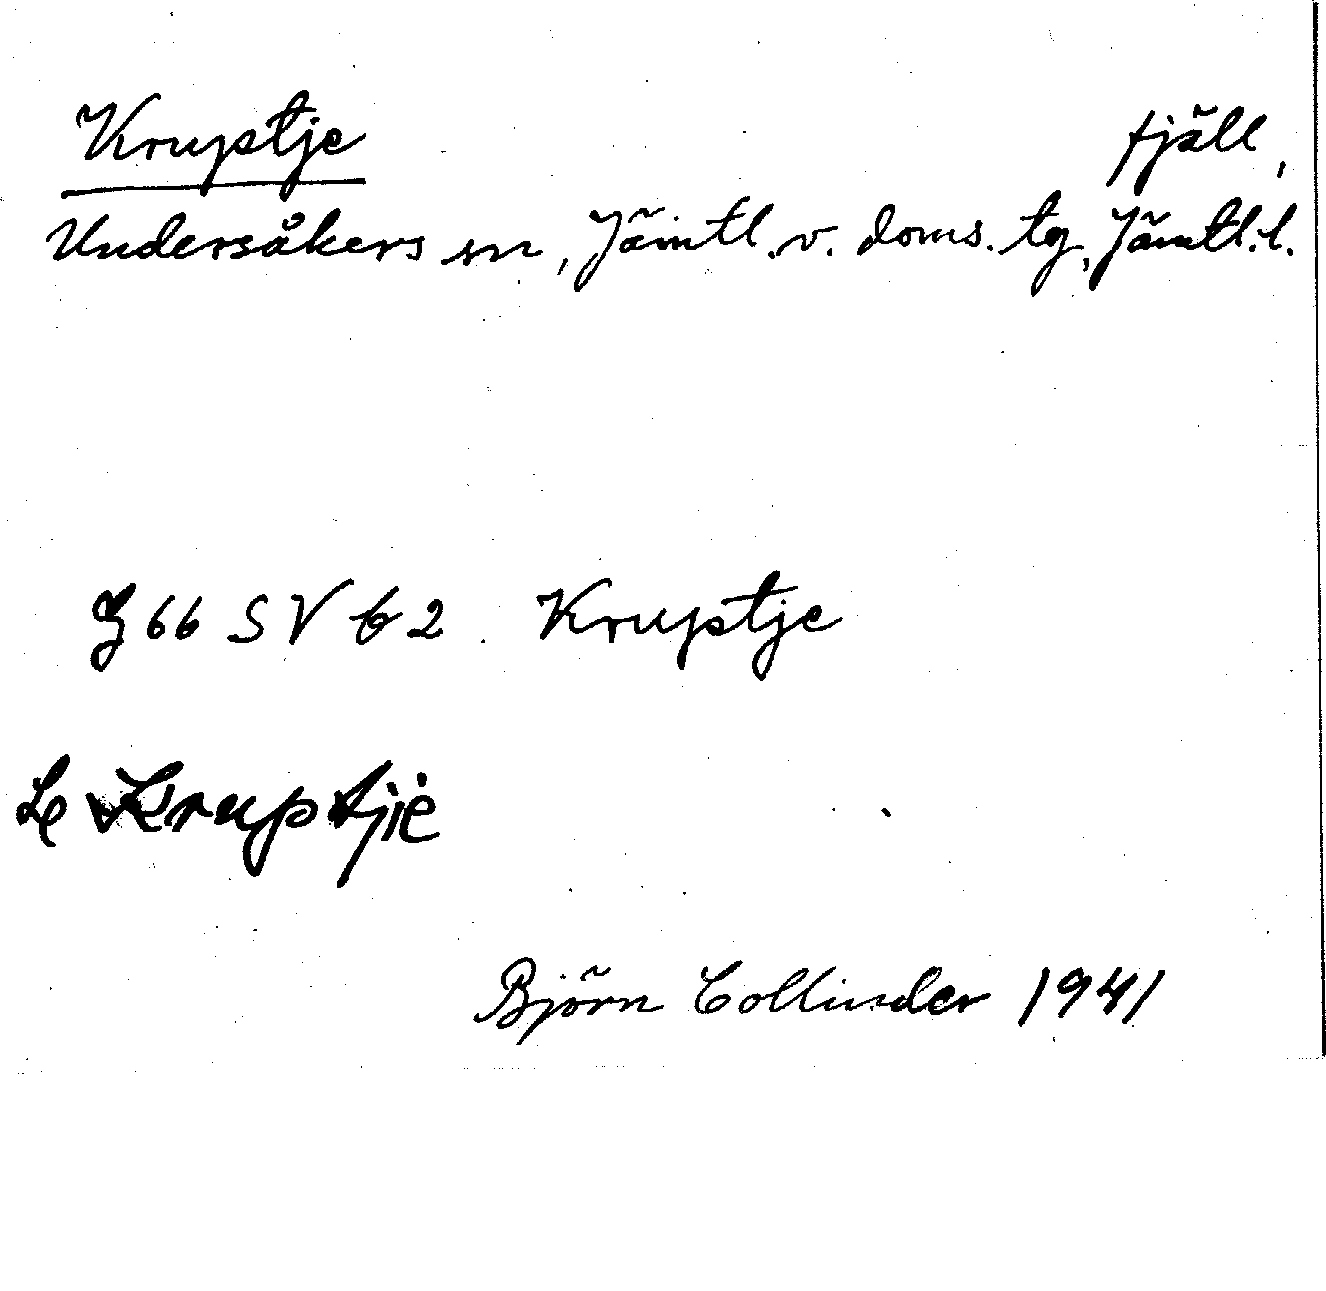 Kruptje fjäll,
Undersåkers sn, Jämtl. v. doms. tg, Jämtl. l.
G 66 SV b 2. Kruptje
L Kruptjiė
Björn Collinder 1941